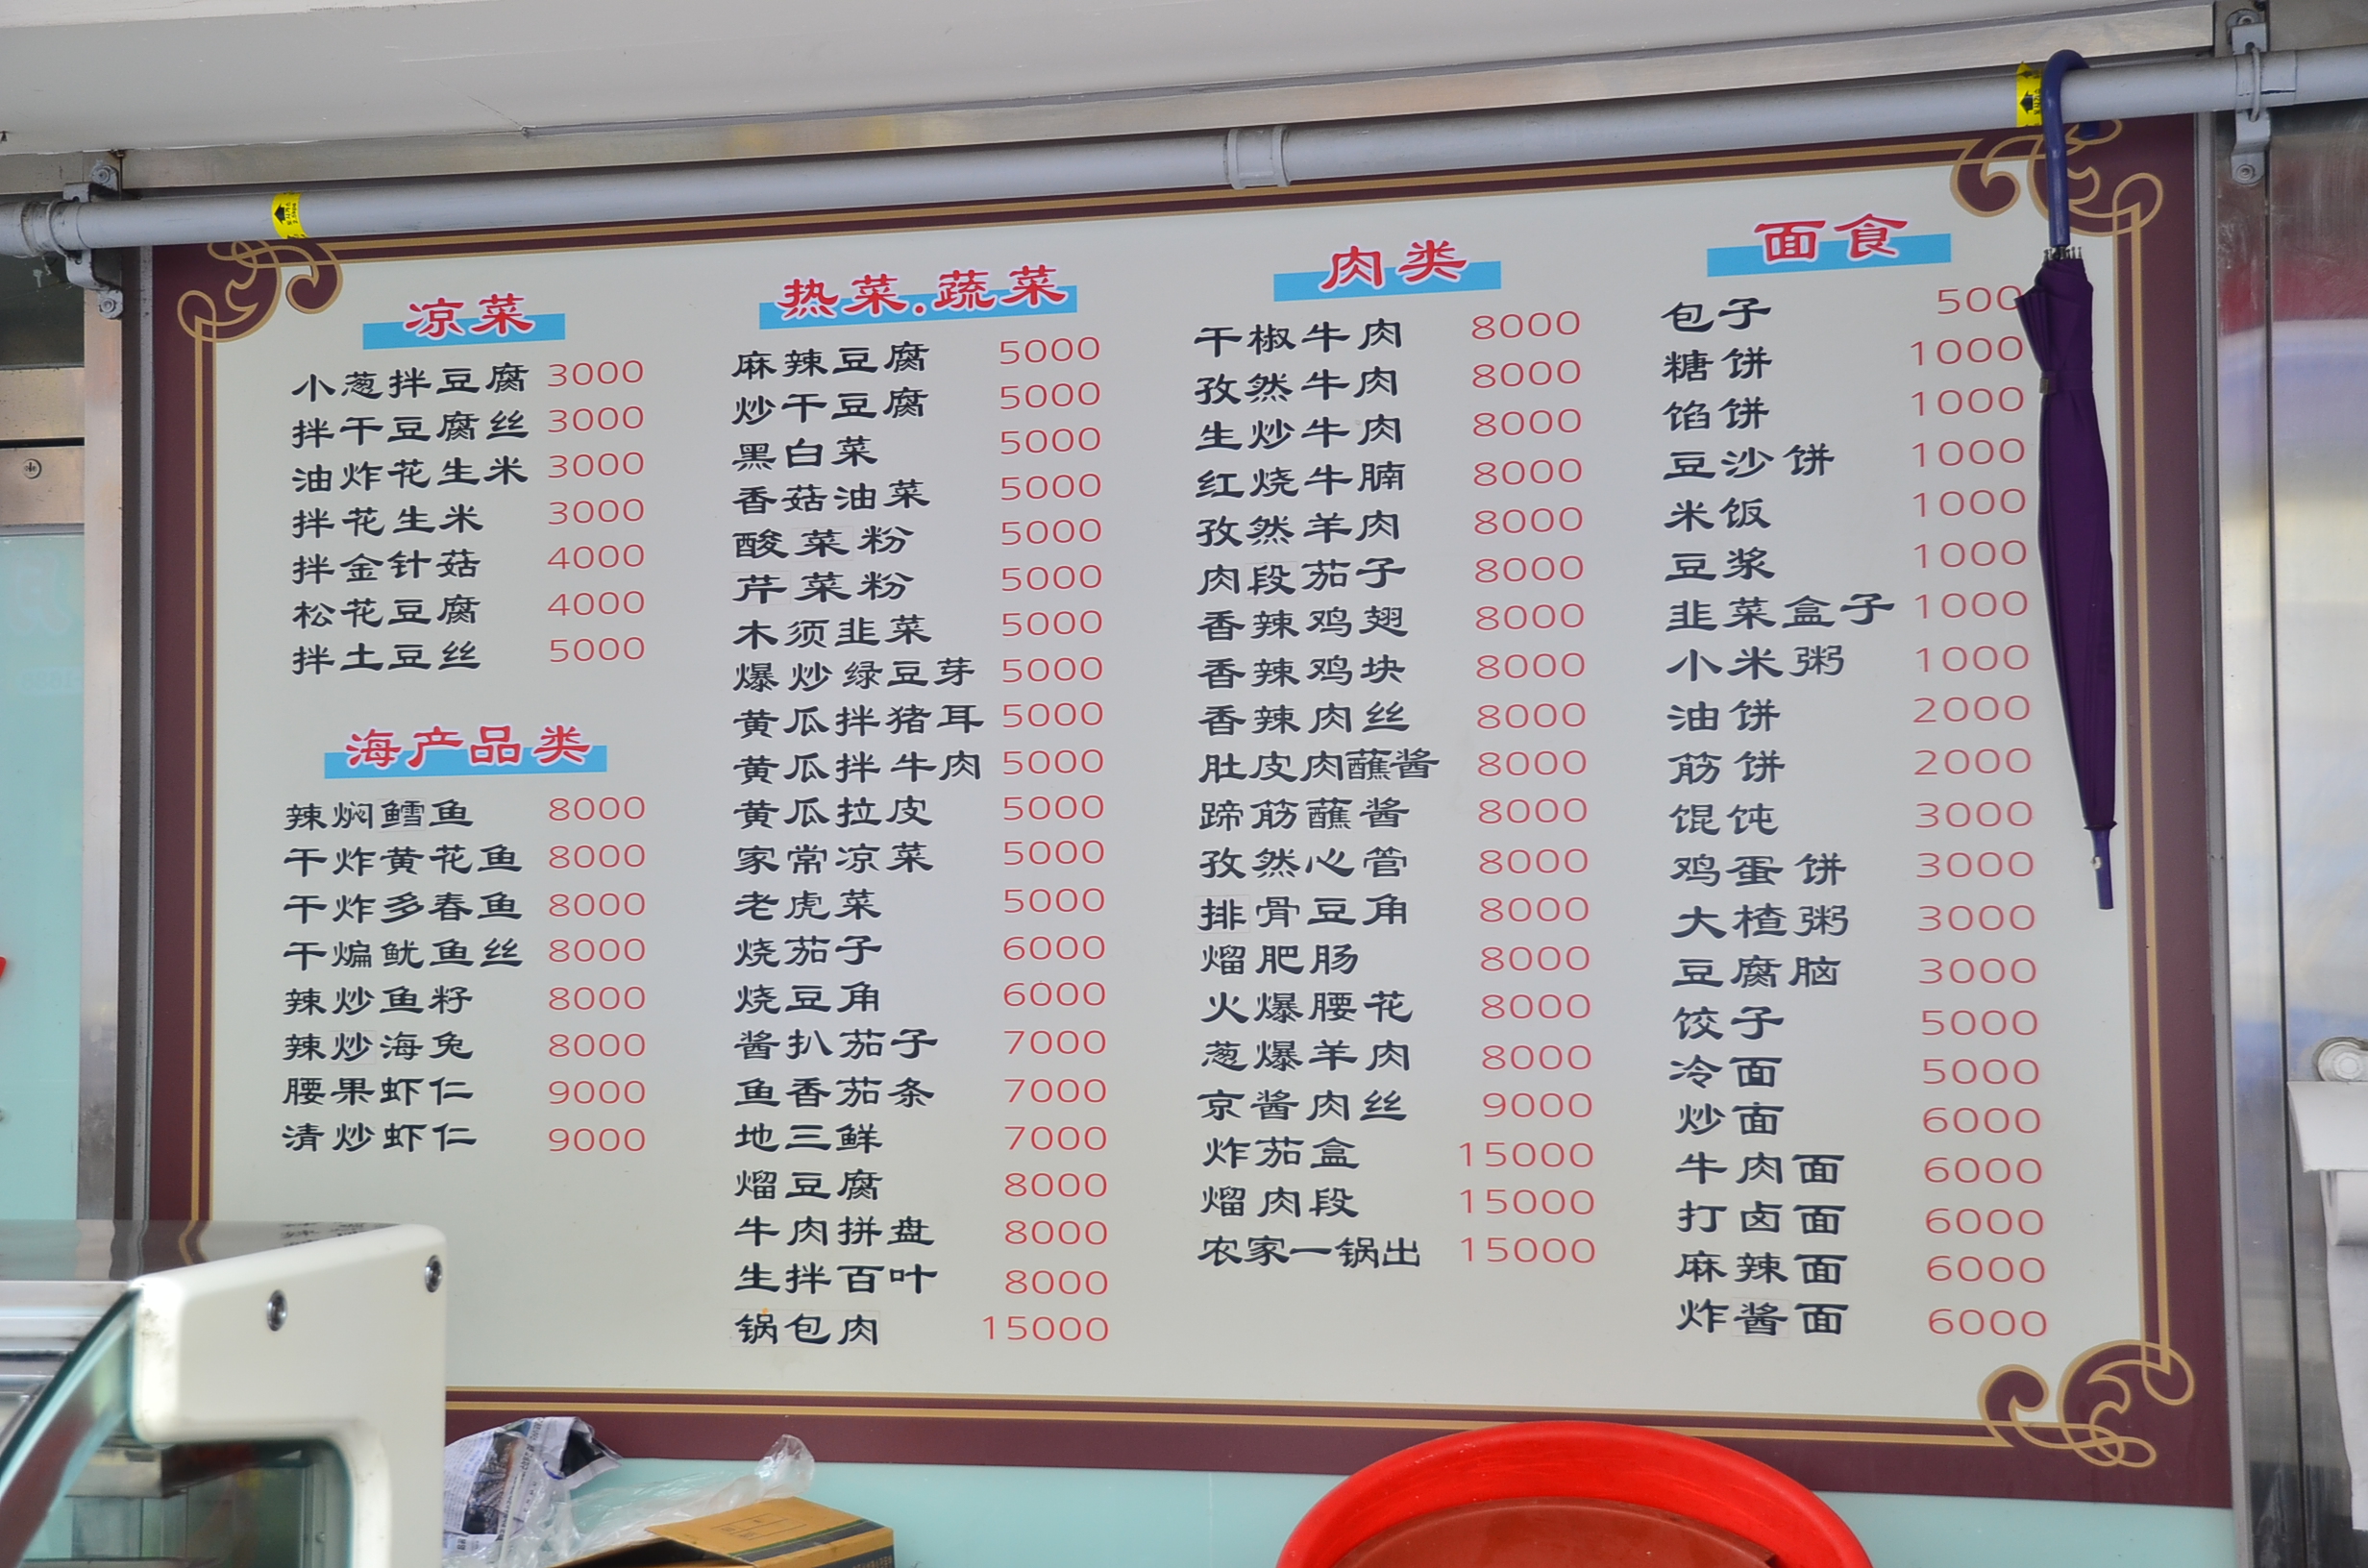 凉菜
小葱拌豆腐 3000
拌干豆腐丝 3000
油炸花生米 3000
拌花生米 3000
拌金针菇 4000
松花豆腐 4000
拌土豆丝 5000
海产品类
辣焖鳕鱼 8000
干炸黄花鱼 8000
干炸多春鱼 8000
干煸鱿鱼丝 8000
辣炒鱼籽 8000
辣炒海兔 8000
腰果虾仁 9000
清炒虾仁 9000
热菜.蔬菜
麻辣豆腐 5000
炒干豆腐 5000
黑白菜 5000
香菇油菜 5000
酸菜粉 5000
芹菜粉 5000
木须韭菜 5000
爆炒绿豆芽 5000
黄瓜拌猪耳 5000
黄瓜拌牛肉 5000
黄瓜拉皮 5000
家常凉菜 5000
老虎菜 5000
烧茄子 6000
烧豆角 6000
酱扒茄子 7000
鱼香茄条 7000
地三鲜 7000
熘豆腐 8000
牛肉拼盘 8000
生拌百叶 8000
锅包肉 15000
肉类
干椒牛肉 8000
孜然牛肉 8000
生炒牛肉 8000
红烧牛腩 8000
孜然羊肉 8000
肉段茄子 8000
香辣鸡翅 8000
香辣鸡块 8000
香辣肉丝 8000
肚皮肉蘸酱 8000
蹄筋蘸酱 8000
孜然心管 8000
排骨豆角 8000
熘肥肠 8000
火爆腰花 8000
葱爆羊肉 8000
京酱肉丝 9000
炸茄盒 15000
熘肉段 15000
农家一锅出 15000
面食
包子 500
糖饼 1000
馅饼 1000
豆沙饼 1000
米饭 1000
豆浆 1000
韭菜盒子 1000
小米粥 1000
油饼 2000
筋饼 2000
馄饨 3000
鸡蛋饼 3000
大楂粥 3000
豆腐脑 3000
饺子 5000
冷面 5000
炒面 6000
牛肉面 6000
打卤面 6000
麻辣面 6000
炸酱面 6000